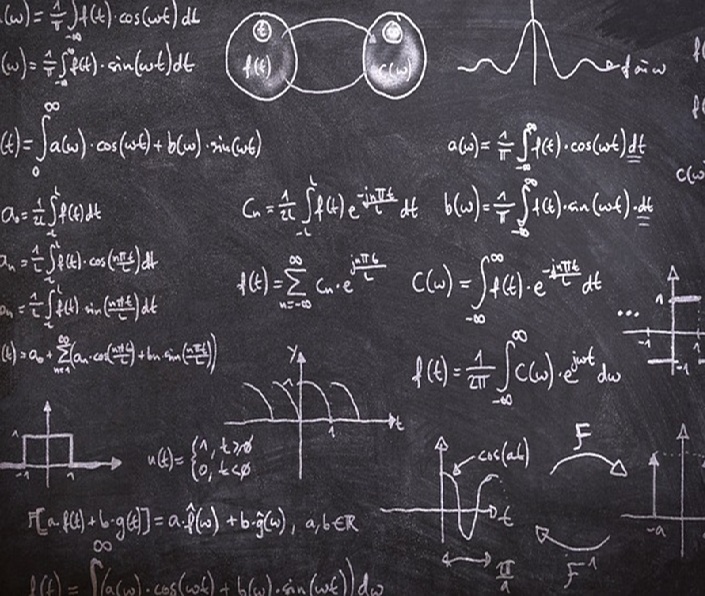 (ω) = 1/π ∫_{-∞}^{∞} f(t)·cos(ωt) dt
(ω) = 1/π ∫_{-∞}^{∞} f(t)·sin(ωt) dt
f(t) c(ω)
f sin ω
(t) = ∫_0^∞ a(ω)·cos(ωt) + b(ω)·sin(ωt)
a(ω) = 1/π ∫_{-∞}^{∞} f(t)·cos(ωt) dt
c(ω
a₀ = 1/2L ∫_{-L}^{L} f(t) dt
Cn = 1/2L ∫_{-L}^{L} f(t) e^{-jnπt/L} dt
b(ω) = 1/π ∫_{-∞}^{∞} f(t)·sin(ωt)·dt
an = 1/L ∫_{-L}^{L} f(t)·cos(nπt/L) dt
f(t) = ∑_{n=-∞}^{∞} Cn·e^{jnπt/L}
C(ω) = ∫_{-∞}^{∞} f(t)·e^{-jnπt/L} dt
= 1/L ∫_{-L}^{L} f(t) sin(nπt/L) dt
(t) = a₀ + ∑_{n=1}^{∞} (an·cos(nπt/L) + bn·sin(nπt/L))
f(t) = 1/2π ∫_{-∞}^{∞} C(ω)·e^{jωt} dω
... 1 -1 1
y 1 1 t
1 -1 1
u(t) = {1, t≥0
0, t<0
cos(at)
t
π/1
F
F⁻¹
-a
F[a·f(t) + b·g(t)] = a·f̂(ω) + b·ĝ(ω), a,b∈ℝ
f(t) = ∫^∞ (a(ω)·cos(ωt) + b(ω)·sin(ωt)) dω